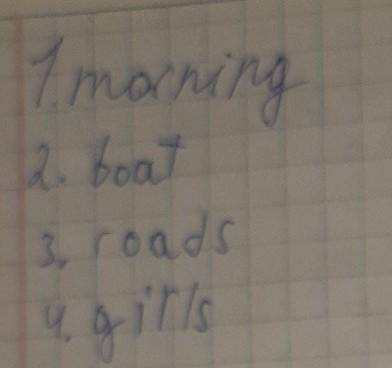 1. morning
2. boat
3. roads
4. girls